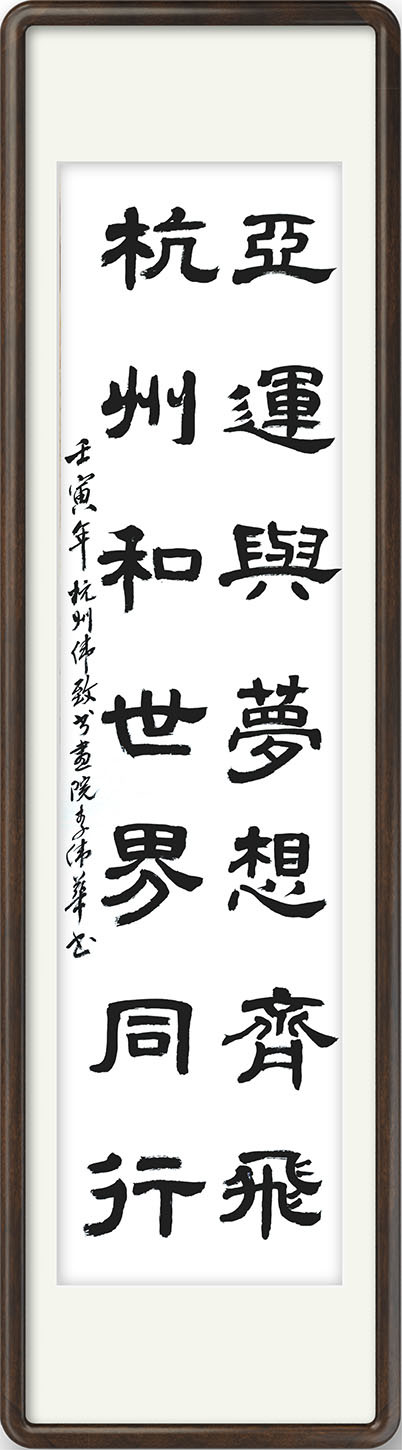 亞運與夢想齊飛
杭州和世界同行
壬寅年杭州伟致书畫院李伟華书